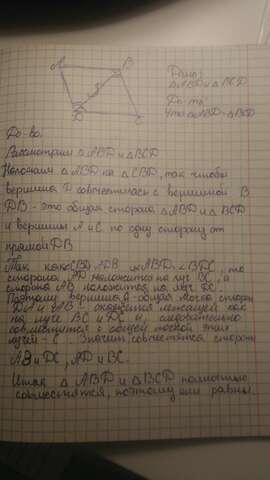 A B
D C
Дано:
△ABD и △BCD
До-ть:
что △ABD=△BCD
До-во:
Рассмотрим △ABD и △BCD
Наложим △ABD на △CBD, так чтобы
вершина D совместилась с вершиной B
DB - это общая сторона △ABD и △BCD
и вершины A и C по одну сторону от
прямой DB
Так как ∠CBD=∠ADB и ∠ABD=∠BDC, то
сторона AD наложится на луч BC, а
сторона AB наложится на луч DC.
Поэтому вершина A общая точка сторон
DA и AB окажется лежащей как
на луче BC и DC и, следовательно
совместится с общей точкой этих
лучей - C. Значит совместятся стороны
AB и DC, AD и BC.
Итак △ABD и △BCD полностью
совместятся, поэтому они равны.